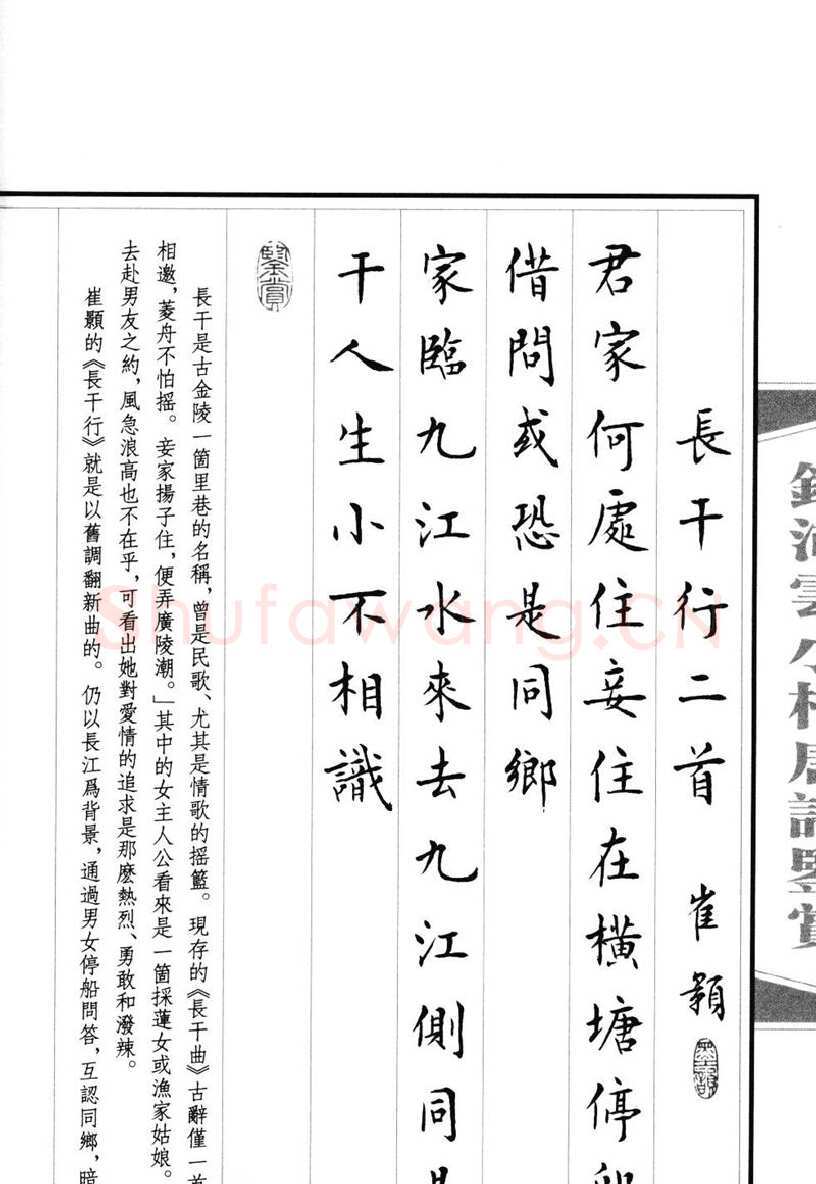 長干行二首 崔顥
君家何處住妾住在橫塘停
借問或恐是同鄉
家臨九江水來去九江側同
干人生小不相識
鑒賞
長干是古金陵一箇里巷的名稱,曾是民歌、尤其是情歌的摇籃。現存的《長干曲》古辭僅一首
相邀,菱舟不怕摇。妾家揚子住,便弄廣陵潮。」其中的女主人公看來是一箇採蓮女或漁家姑娘。
去赴男友之約,風急浪高也不在乎,可看出她對愛情的追求是那麼熱烈、勇敢和潑辣。
崔顥的《長干行》就是以舊調翻新曲的。仍以長江爲背景,通過男女停船問答,互認同鄉,暗
Shufawang.CN